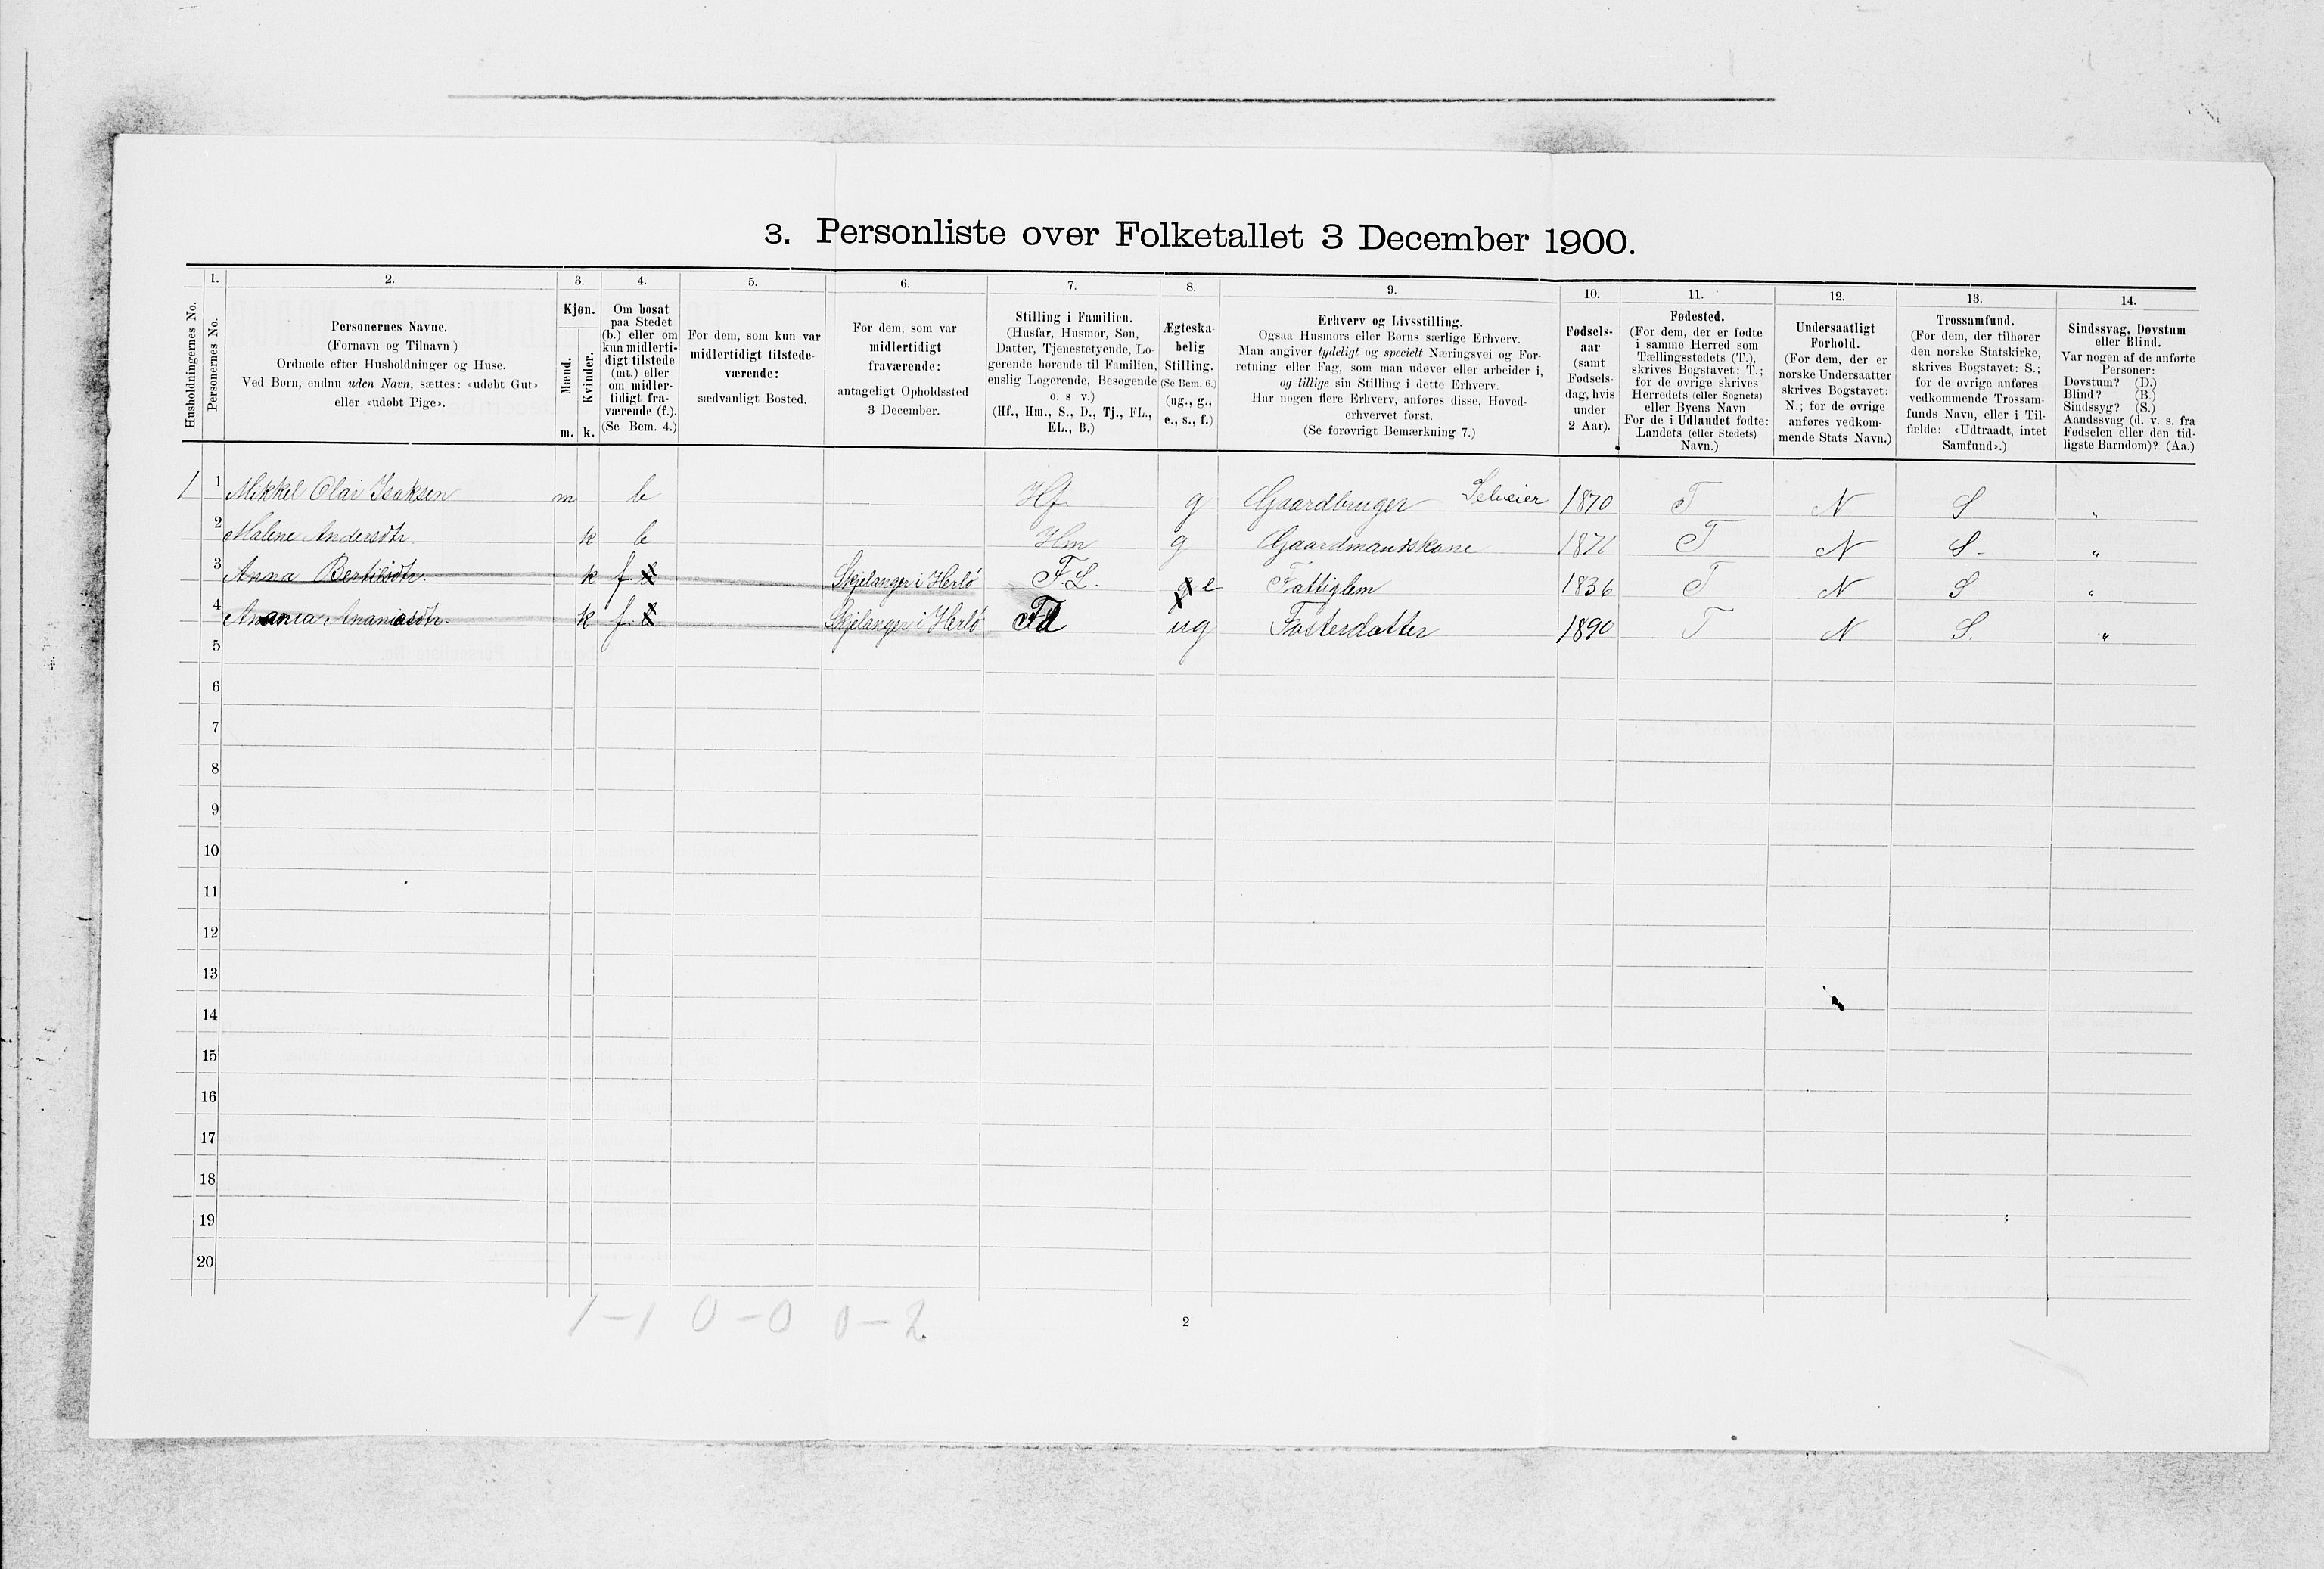 3. Personliste over Folketallet 3 December 1900.
Husholdningernes No.
1.
Personernes No.
2.
Personernes Navne.
(Fornavn og Tilnavn)
Ordnede efter Husholdninger og Huse.
Ved Børn, endnu uden Navn, sættes: «udøbt Gut»
eller «udøbt Pige».
3.
Kjøn.
Mænd.
Kvinder.
m. k.
4.
Om bosat
paa Stedet
(b.) eller om
kun midlerti-
digt tilstede
(mt.) eller
om midler-
tidigt fra-
værende (f.).
(Se Bem. 4.)
5.
For dem, som kun var
midlertidigt tilstede-
værende:
sædvanligt Bosted.
6.
For dem, som var
midlertidigt
fraværende:
antageligt Opholdssted
3 December.
7.
Stilling i Familien.
(Husfar, Husmor, Søn,
Datter, Tjenestetyende, Lo-
gerende hørende til Familien,
enslig Logerende, Besøgende
o. s. v.)
(Hf., Hm., S., D., Tj., FL.,
EL., B.)
8.
Ægteska-
belig
Stilling.
(Se Bem. 6.)
(ug., g.,
e., s., f.)
9.
Erhverv og Livsstilling.
Ogsaa Husmors eller Børns særlige Erhverv.
Man angiver tydeligt og specielt Næringsvei og For-
retning eller Fag, som man udøver eller arbeider i,
og tillige sin Stilling i dette Erhverv.
Har nogen flere Erhverv, anføres disse, Hoved-
erhvervet først.
(Se forøvrigt Bemærkning 7.)
10.
Fødsels-
aar
(samt
Fødsels-
dag, hvis
under
2 Aar).
11.
Fødested.
(For dem, der er fødte
i samme Herred som
Tællingsstedets (T.),
skrives Bogstavet: T.;
for de øvrige skrives
Herredets (eller Sognets)
eller Byens Navn.
For de i Udlandet fødte:
Landets (eller Stedets)
Navn.)
12.
Undersaatligt
Forhold.
(For dem, der er
norske Undersaatter
skrives Bogstavet:
N.; for de øvrige
anføres vedkom-
mende Stats Navn.)
13.
Trossamfund.
(For dem, der tilhører
den norske Statskirke,
skrives Bogstavet: S.;
for de øvrige anføres
vedkommende Trossam-
funds Navn, eller i Til-
fælde: «Udtraadt, intet
Samfund».)
14.
Sindssvag, Døvstum
eller Blind.
Var nogen af de anførte
Personer:
Døvstum? (D.)
Blind? (B.)
Sindssyg? (S.)
Aandssvag (d. v. s. fra
Fødselen eller den tid-
ligste Barndom)? (Aa.)
1 1 Mikkel Olai Isaksen m b Hf g Gaardbruger Selveier 1870 T N S "
2 Malene Andersdtr. k b Hm g Gaardmandskone 1871 T N S. "
3 Anna Bertilsdtr. k f Skjelanger i Herlö F.L. e Fattiglem 1836 T N S "
4 Anania Ananiasdtr. k f Skjelanger i Herlö ug Fosterdatter 1890 T N S. "
5
6
7
8
9
10
11
12
13
14
15
16
17
18
19
20
1-1 0-0 0-2
2